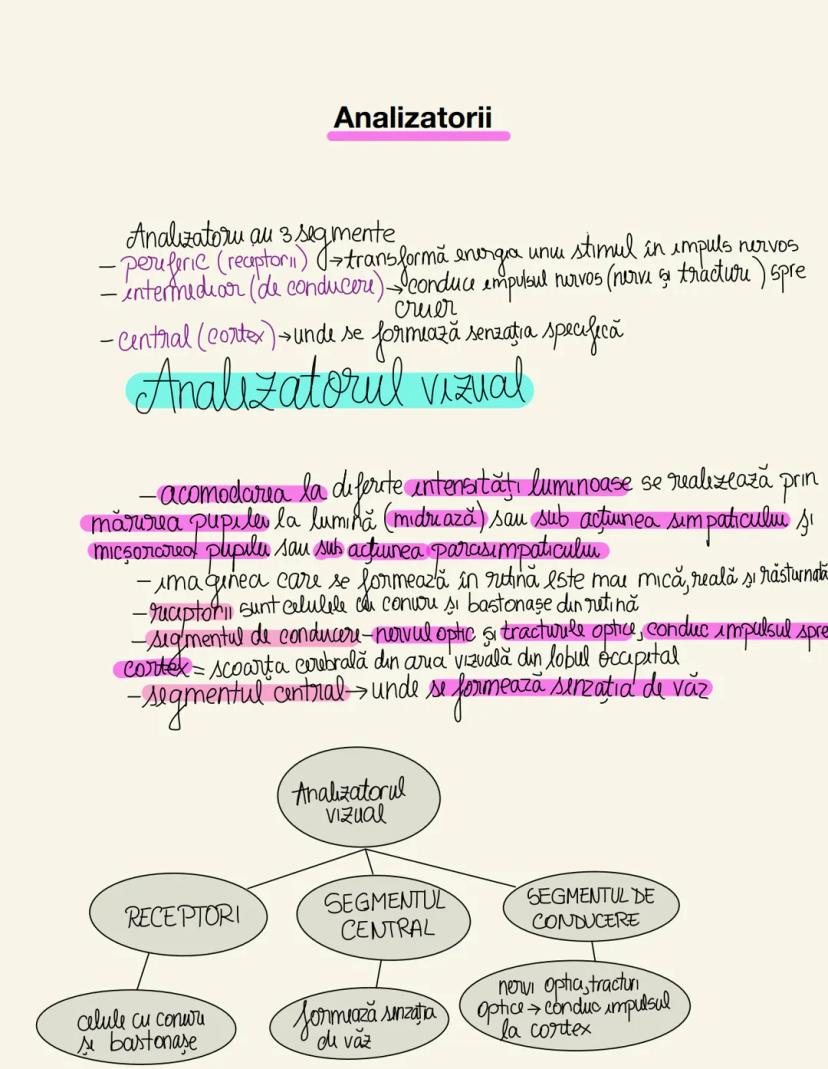 Analizatorii
Analizatorii au 3 segmente
– periferic (receptorii) → transformă energia unui stimul în impuls nervos
– intermediar (de conducere) → conduce impulsul nervos (nervi și tracturi) spre
creier
– central (cortex) → unde se formează senzația specifică
Analizatorul vizual
– acomodarea la diferite intensități luminoase se realizează prin
mărirea pupilei la lumină (midriază) sau sub acțiunea simpaticului și
micșorarea pupilei sau sub acțiunea parasimpaticului
– imaginea care se formează în retină este mai mică, reală și răsturnată
– receptorii sunt celulele cu conuri și bastonașe din retină
– segmentul de conducere – nervul optic și tracturile optice, conduc impulsul spre
cortex = scoarța cerebrală din aria vizuală din lobul occipital
– segmentul central → unde se formează senzația de văz
Analizatorul
vizual
RECEPTORI
SEGMENTUL
CENTRAL
SEGMENTUL DE
CONDUCERE
celule cu conuri
și bastonașe
formează senzația
de văz
nervi optici, tracturi
optice → conduc impulsul
la cortex